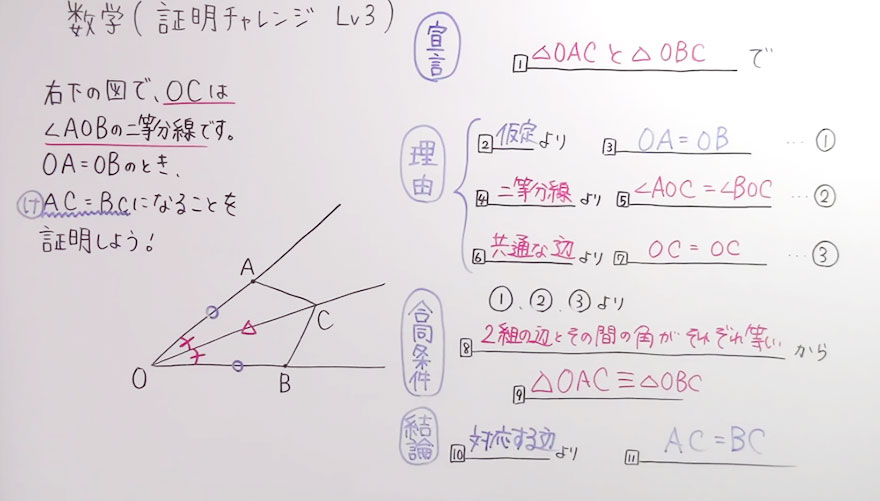 数学(証明チャレンジ Lv3)
右下の図で、OCは
∠AOBの二等分線です。
OA=OBのとき、
け AC=BCになることを
証明しよう!
A
C
O
B
宣言
1 △OACと△OBC で
理由
2 仮定より 3 OA=OB …①
4 二等分線より 5 ∠AOC=∠BOC …②
6 共通な辺より 7 OC=OC …③
合同条件
①、②、③より
8 2組の辺とその間の角がそれぞれ等しい から
9 △OAC≡△OBC
結論
10 対応する辺より 11 AC=BC